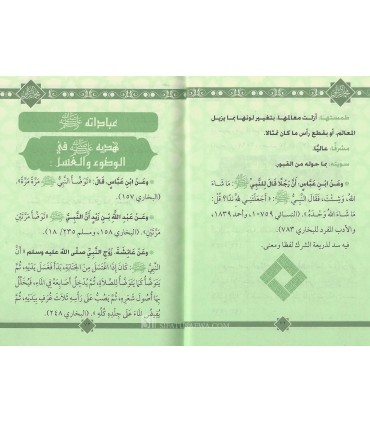 طمستها: أزلت معالمها، بتغيير لونها بما يزيل
المعالم، أو بقطع رأس ما كان تمثالا.
مشرفًا: عاليًا.
سويته: بما حوله من القبور.
وعَنِ ابْنِ عَبَّاسٍ، أَنَّ رَجُلًا قَالَ لِلنَّبِيِّ ﷺ: مَا شَاءَ
اللهُ، وَشِئْتَ، فَقَالَ النَّبِيُّ ﷺ: «أَجَعَلْتَنِي لِلهِ نِدًّا؟ قُلْ:
مَا شَاءَ اللهُ وَحْدَهُ». (النسائي ١٠٧٥٩، وأحمد ١٨٣٩،
والأدب المفرد للبخاري ٧٨٣)
فيه سد لذريعة الشرك لفظا ومعنى.
عباداته ﷺ
هديه ﷺ في
الوضوء والغسل:
وعَنِ ابْنِ عَبَّاسٍ، قَالَ: «تَوَضَّأَ النَّبِيُّ ﷺ مَرَّةً مَرَّةً».
(البخاري ١٥٧).
وَعَنْ عَبْدِ اللهِ بْنِ زَيْدٍ أَنَّ النَّبِيَّ ﷺ «تَوَضَّأَ مَرَّتَيْنِ
مَرَّتَيْنِ». (البخاري ١٥٨، ومسلم ٢٣٥/ ١٨).
وعَنْ عَائِشَةَ، زَوْجِ النَّبِيِّ صلَّى الله عليه وسلم «أَنَّ
النَّبِيَّ ﷺ: كَانَ إِذَا اغْتَسَلَ مِنَ الجَنَابَةِ، بَدَأَ فَغَسَلَ يَدَيْهِ، ثُمَّ
يَتَوَضَّأُ كَمَا يَتَوَضَّأُ لِلصَّلَاةِ، ثُمَّ يُدْخِلُ أَصَابِعَهُ فِي المَاءِ، فَيُخَلِّلُ
بِهَا أُصُولَ شَعَرِهِ، ثُمَّ يَصُبُّ عَلَى رَأْسِهِ ثَلَاثَ غُرَفٍ بِيَدَيْهِ، ثُمَّ
يُفِيضُ المَاءَ عَلَى جِلْدِهِ كُلِّهِ». (البخاري ٢٤٨)